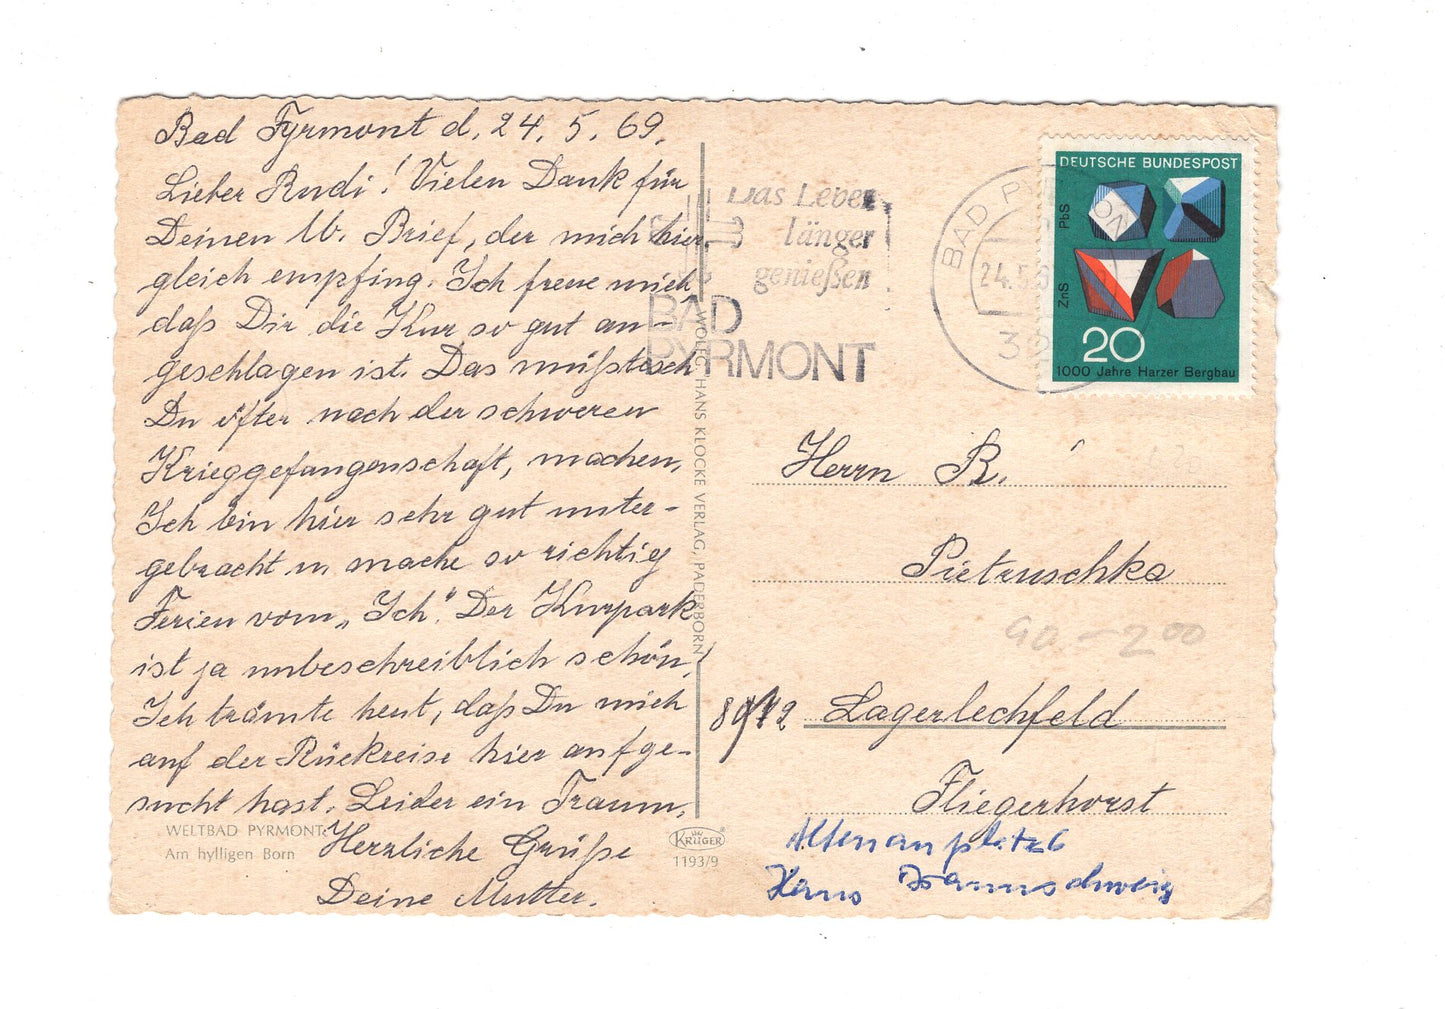 Bad Pyrmont d. 24. 5. 69.
Lieber Rudi! Vielen Dank für
Deinen lb. Brief, der mich hier
gleich empfing. Ich freue mich
daß Dir die Kur so gut an-
geschlagen ist. Das müßtest
Du öfter nach der schweren
Krieggefangenschaft, machen,
Ich bin hier sehr gut unter-
gebracht u. mache so richtig
Ferien vom „Ich". Der Kurpark
ist ja unbeschreiblich schön,
Ich träumte heut, daß Du mich
auf der Rückreise hier aufge-
sucht hast. Leider ein Traum,
Herzliche Grüße
Deine Mutter.
WELTBAD PYRMONT
Am hylligen Born
WOLFG. HANS KLOCKE VERLAG, PADERBORN
KRÜGER
1193/9
Das Leben
länger
genießen
BAD
PYRMONT
BAD PYRMONT
24.5.6
32
DEUTSCHE BUNDESPOST
PbS
ZnS
20
1000 Jahre Harzer Bergbau
Herrn R.
Pietruschka
Lagerlechfeld
Fliegerhorst
Altenauplatz 6
Haus Braunschweig
90 – 2 00